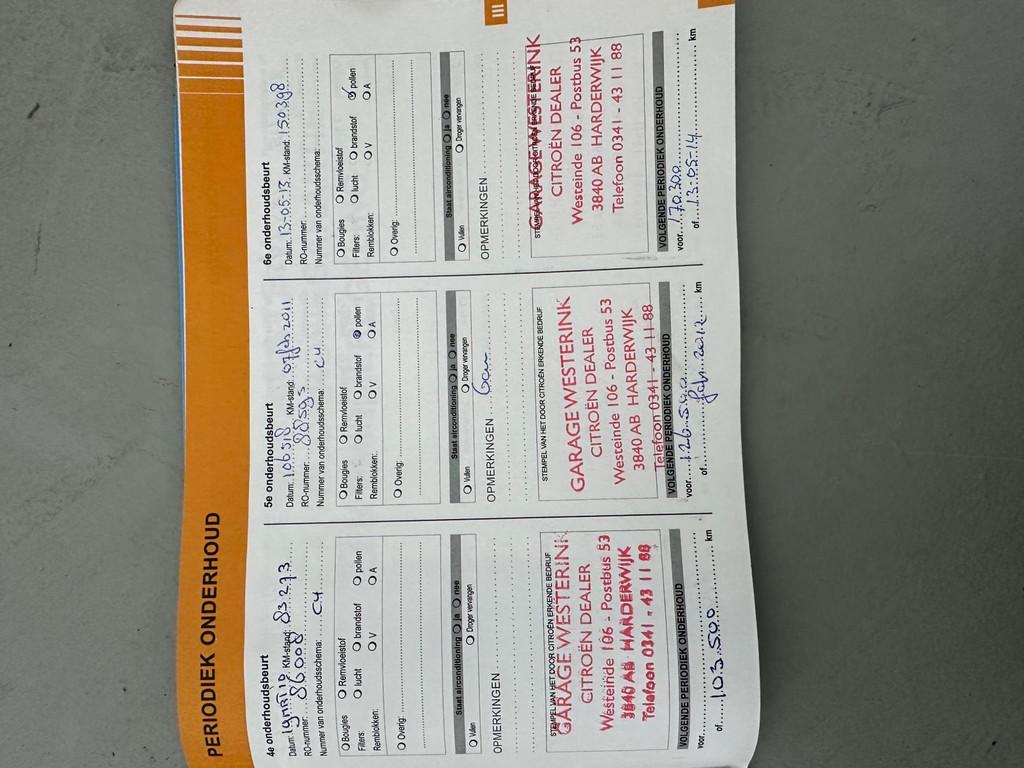 PERIODIEK ONDERHOUD
4e onderhoudsbeurt
Datum: KM-stand: 83.273
RO-nummer: 86008
Nummer van onderhoudsschema: C4
Bougies Remvloeistof
Filters: lucht brandstof pollen
Remblokken: V A
Overig:
Staat airconditioning ja nee
Vullen Droger vervangen
OPMERKINGEN
STEMPEL VAN HET DOOR CITROËN ERKENDE BEDRIJF
GARAGE WESTERINK
CITROËN DEALER
Westeinde 106 - Postbus 53
3840 AB HARDERWIJK
Telefoon 0341 - 43 11 88
VOLGENDE PERIODIEK ONDERHOUD
voor
of 103.500 km
5e onderhoudsbeurt
Datum: 106518 KM-stand: 07feb2011
RO-nummer: 
Nummer van onderhoudsschema: C4
Bougies Remvloeistof
Filters: lucht brandstof pollen
Remblokken: V A
Overig:
Staat airconditioning ja nee
Vullen Droger vervangen
OPMERKINGEN
STEMPEL VAN HET DOOR CITROËN ERKENDE BEDRIJF
GARAGE WESTERINK
CITROËN DEALER
Westeinde 106 - Postbus 53
3840 AB HARDERWIJK
Telefoon 0341 - 43 11 88
VOLGENDE PERIODIEK ONDERHOUD
voor 126.500
of feb. 2012 km
6e onderhoudsbeurt
Datum: 13-05-13 KM-stand: 150.398
RO-nummer:
Nummer van onderhoudsschema:
Bougies Remvloeistof
Filters: lucht brandstof pollen
Remblokken: V A
Overig:
Staat airconditioning ja nee
Vullen Droger vervangen
OPMERKINGEN
STEMPEL VAN HET DOOR CITROËN ERKENDE BEDRIJF
GARAGE WESTERINK
CITROËN DEALER
Westeinde 106 - Postbus 53
3840 AB HARDERWIJK
Telefoon 0341 - 43 11 88
VOLGENDE PERIODIEK ONDERHOUD
voor 170.300
of 13-05-14 km
III